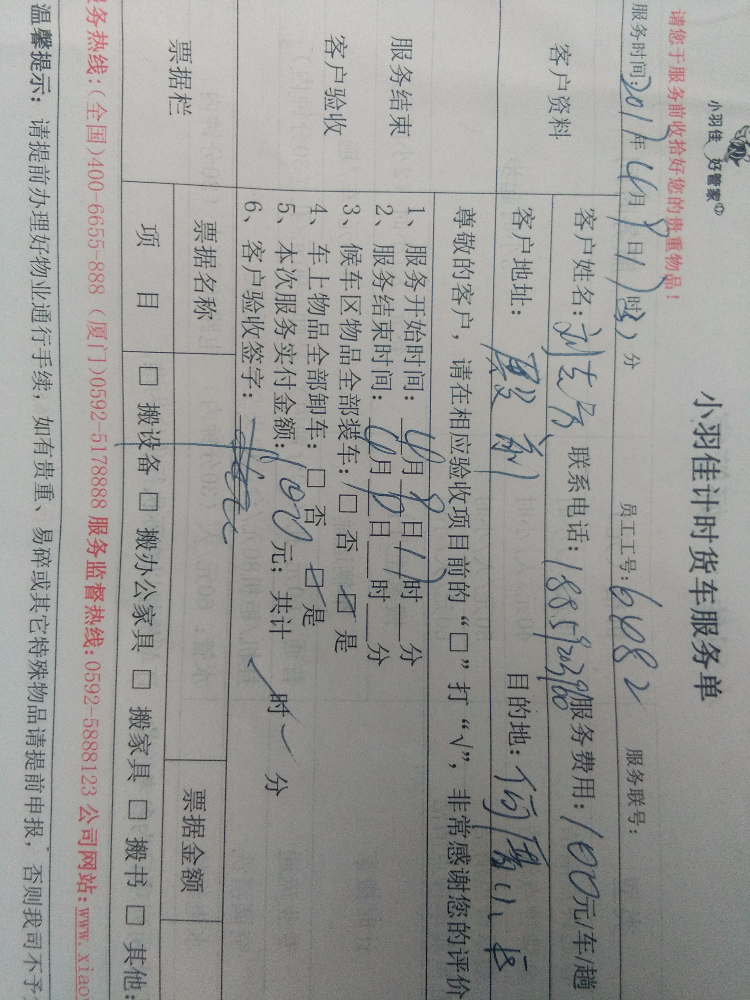 小羽佳 好管家
小羽佳计时货车服务单
请您于服务前收拾好您的贵重物品！
服务时间：2017年4月8日17时 分 员工工号：6482 服务联号：
客户资料
客户姓名：刘志 联系电话： 服务费用：100元/车/趟
客户地址：殿前 目的地：
服务结束
客户验收
尊敬的客户，请在相应验收项目前的“□”打“√”，非常感谢您的评价
1、服务开始时间：4月8日17时 分
2、服务结束时间：4月8日 时 分
3、候车区物品全部装车：□ 否 ☑ 是
4、车上物品全部卸车：□ 否 ☑ 是
5、本次服务实付金额：100元；共计 时 分
6、客户验收签字：
票据栏
票据名称 票据金额
项 目 □ 搬设备 □ 搬办公家具 □ 搬家具 □ 搬书 □ 其他：
务热线：(全国)400-6655-888 (厦门)0592-5178888 服务监督热线：0592-5888123 公司网站：www.xiao
温馨提示：请提前办理好物业通行手续，如有贵重、易碎或其它特殊物品请提前申报，否则我司不予